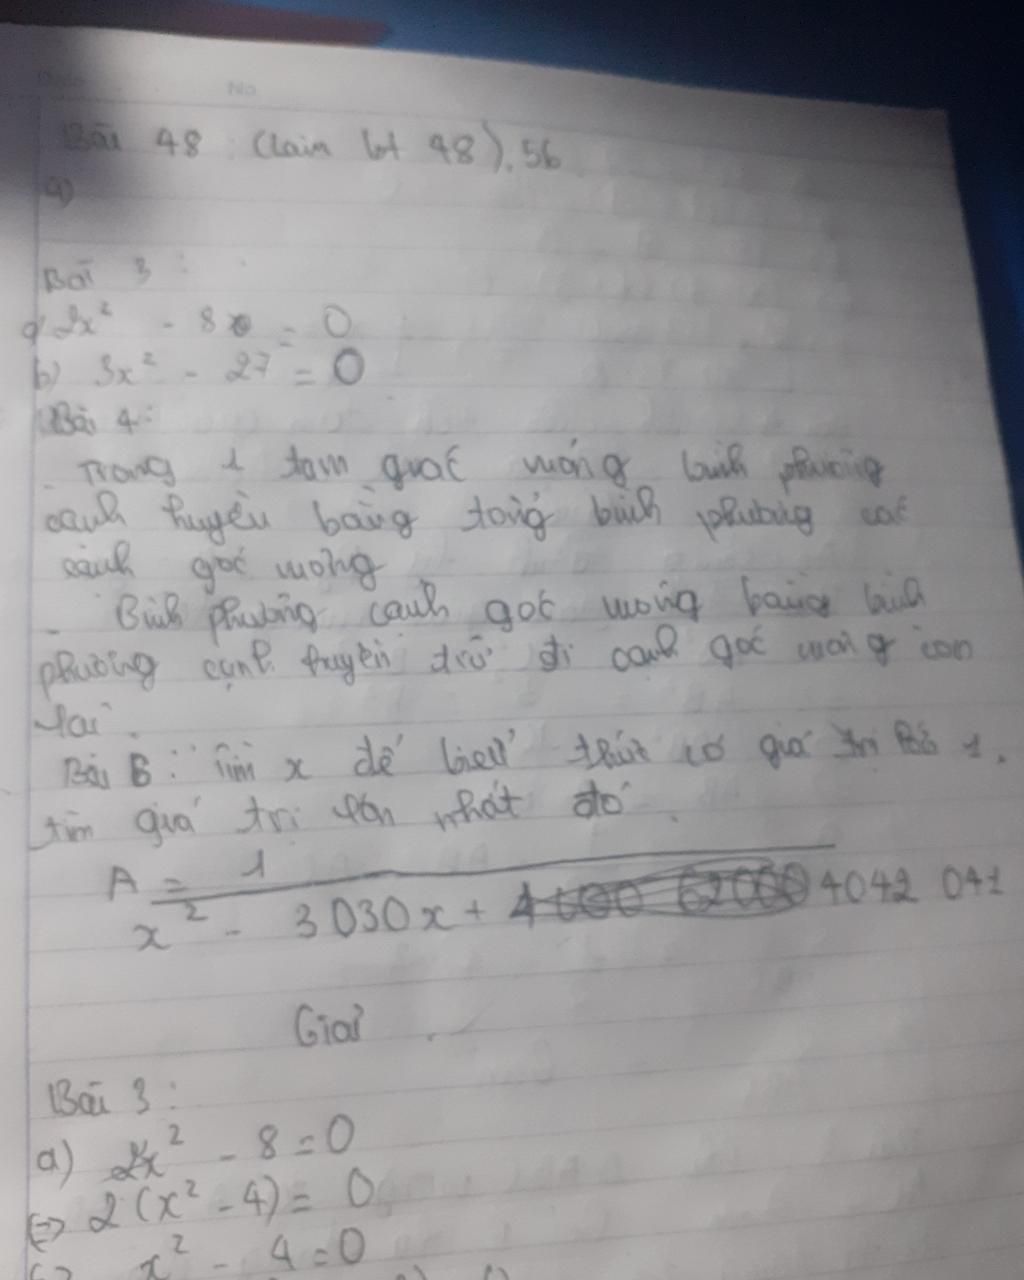 No
Bài 48 (làm bt 48). 56
a)
Bài 3 :
a) 2x² - 8 = 0
b) 3x² - 27 = 0
Bài 4:
- Trong 1 tam guác vuông bình phương
cạnh huyền bằng tổng bình phương các
cạnh góc vuông
- Bình phương cạnh góc vuông bằng bình
phương cạnh huyền trừ đi cạnh góc vuông còn
lại.
Bài 6 : Tìm x để biểu thức có giá trị .
tìm giá trị lớn nhất đó .
A = 1
x² - 3030x + 4042 041
Giải
Bài 3 :
a) 2x² - 8 = 0
⇔ 2(x² - 4) = 0
⇔ x² - 4 = 0